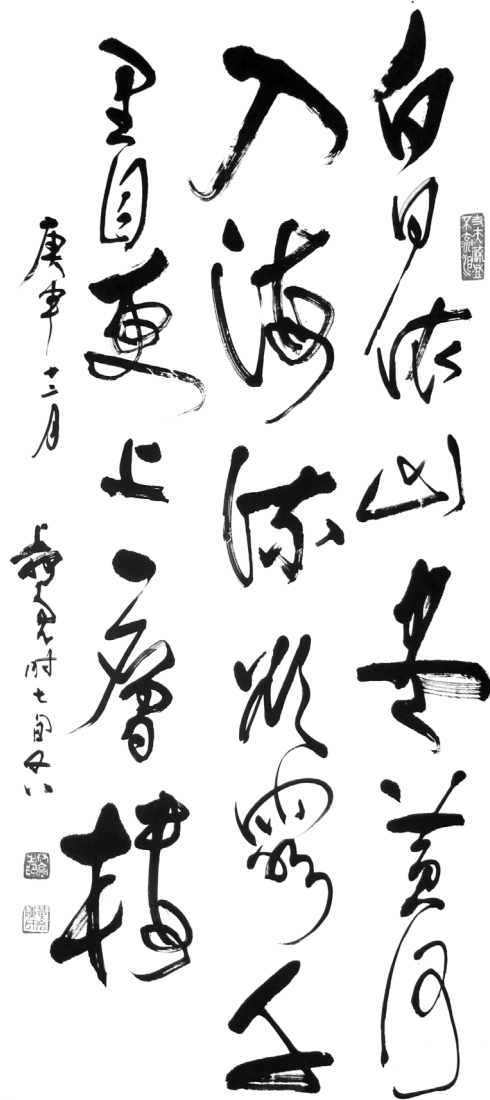 白日依山盡黃河
入海流欲窮千
里目更上一層樓
庚申十二月 時七旬又八